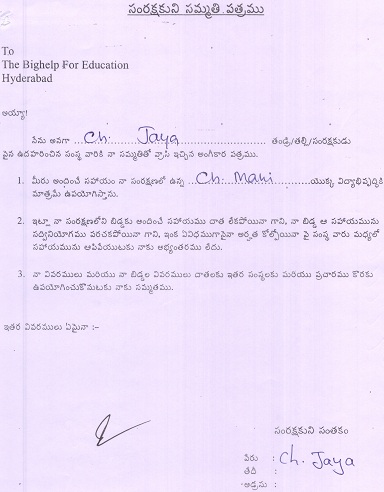 సంరక్షకుని సమ్మతి పత్రము
To
The Bighelp For Education
Hyderabad
అయ్యా!
నేను అనగా ...Ch. Jaya... తండ్రి/తల్లి/సంరక్షకుడు
పైన ఉదహరించిన సంస్థ వారికి నా సమ్మతితో వ్రాసి ఇచ్చిన అంగీకార పత్రము.
1. మీరు అందించే సహాయం నా సంరక్షణలో ఉన్న ...Ch. Mani...యొక్క విద్యాభివృద్ధికి
మాత్రమే ఉపయోగిస్తాను.
2. ఇట్లా నా సంరక్షణలోని బిడ్డకు అందించే సహాయము దాత లేకపోయినా గాని, నా బిడ్డ ఆ సహాయమును
సద్వినియోగము పరచకపోయినా గాని, ఇంక ఏవిధముగానైనా అర్హత కోల్పోయినా పై సంస్థ వారు మధ్యలో
సహాయమును ఆపివేయుటకు నాకు అభ్యంతరము లేదు.
3. నా వివరములు మరియు నా బిడ్డల వివరములు దాతలకు ఇతర సంస్థలకు మరియు ప్రచారము కొరకు
ఉపయోగించుకొనుటకు నాకు సమ్మతము.
ఇతర వివరములు ఏమైనా :–
సంరక్షకుని సంతకం
పేరు : Ch. Jaya
తేదీ :
అడ్రసు :